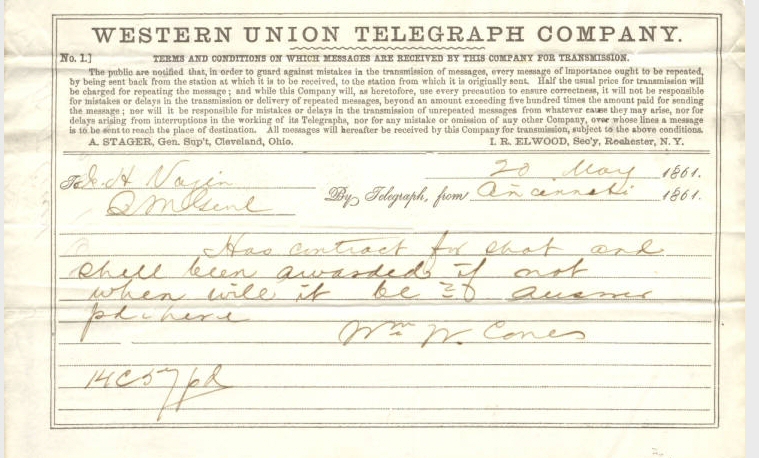 WESTERN UNION TELEGRAPH COMPANY.
No. 1.]
TERMS AND CONDITIONS ON WHICH MESSAGES ARE RECEIVED BY THIS COMPANY FOR TRANSMISSION.
The public are notified that, in order to guard against mistakes in the transmission of messages, every message of importance ought to be repeated,
by being sent back from the station at which it is to be received, to the station from which it is originally sent. Half the usual price for transmission will
be charged for repeating the message; and while this Company will, as heretofore, use every precaution to ensure correctness, it will not be responsible
for mistakes or delays in the transmission or delivery of repeated messages, beyond an amount exceeding five hundred times the amount paid for sending
the message; nor will it be responsible for mistakes or delays in the transmission of unrepeated messages from whatever cause they may arise, nor for
delays arising from interruptions in the working of its Telegraphs, nor for any mistake or omission of any other Company, over whose lines a message
is to be sent to reach the place of destination. All messages will hereafter be received by this Company for transmission, subject to the above conditions.
A. STAGER, Gen. Sup't, Cleveland, Ohio.
I. R. ELWOOD, Sec'y, Rochester, N. Y.
20 May 1861.
To A H Vajin
By Telegraph, from Cincinnati 1861.
Q M Genl
Has contract for shot and
shell been awarded if not
when will it be answer
pd here
Wm W. Cones
14 C 57 pd